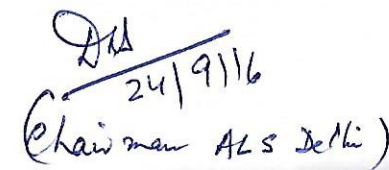 24/9/16
(Chairman ALS Delhi)